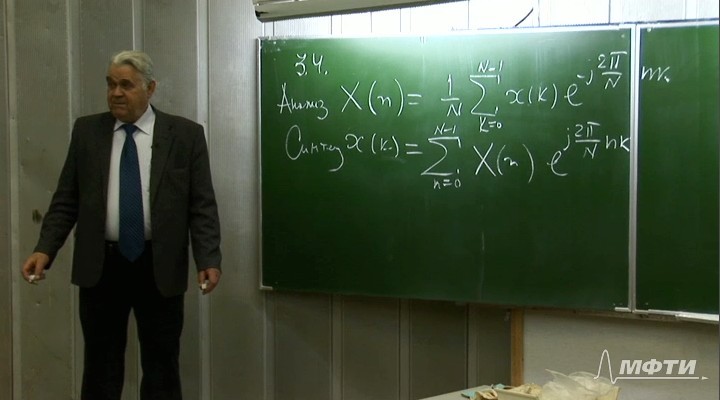 3.4.
Анализ X(n) = 1/N ∑_{k=0}^{N-1} x(k) e^{-j 2π/N nk}
Синтез x(k) = ∑_{n=0}^{N-1} X(n) · e^{j 2π/N nk}
МФТИ